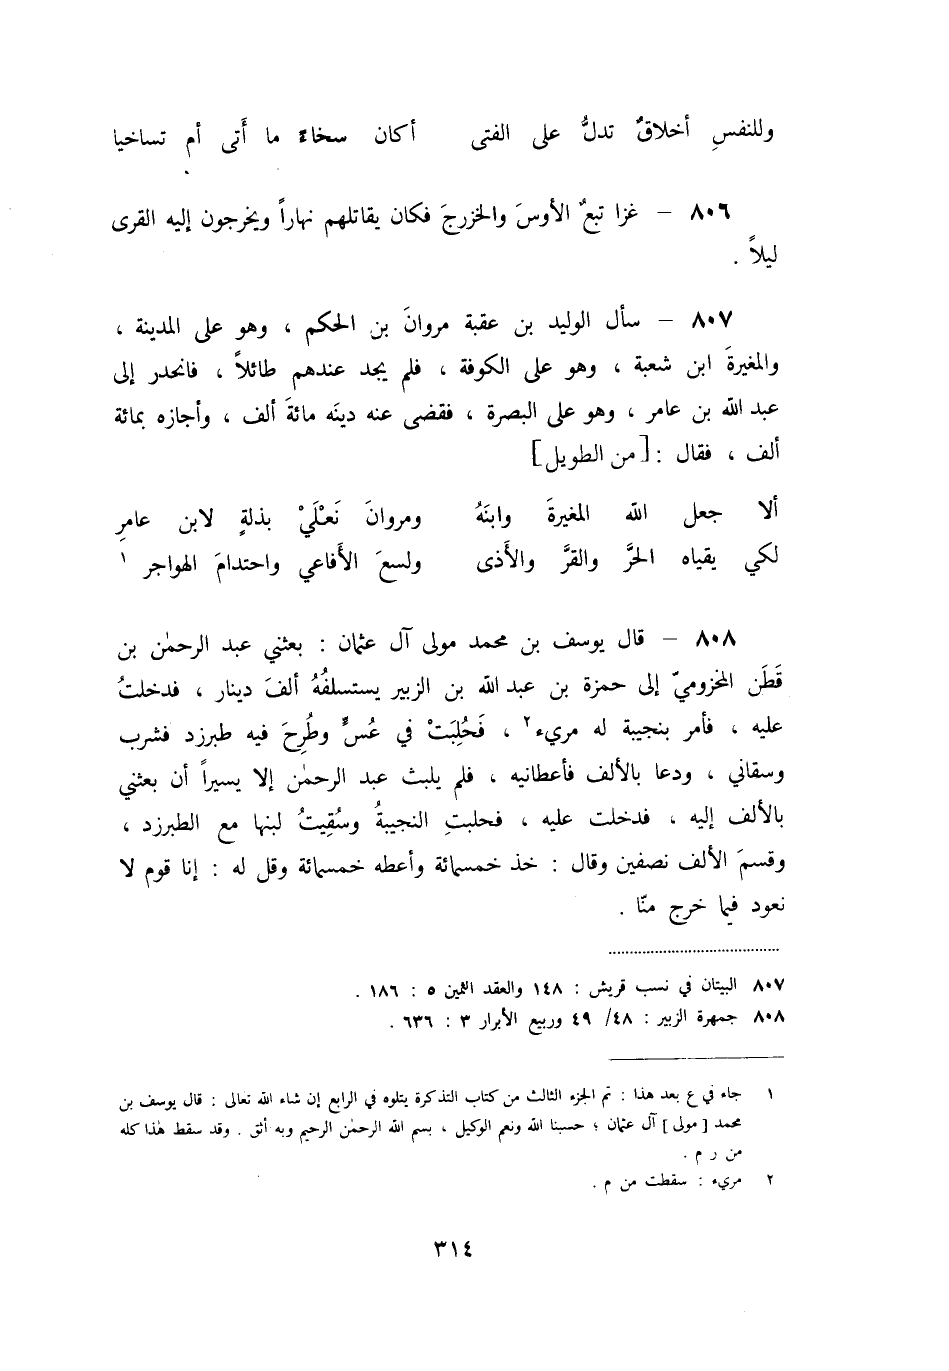 وللنفسِ أخلاقٌ تدلُّ على الفتى أكان سخاءً ما أَتى أم تساخيا
٨٠٦ – غزا تبعٌ الأوسَ والخزرجَ فكان يقاتلهم نهاراً ويخرجون إليه القرى
ليلاً .
٨٠٧ – سأل الوليد بن عقبة مروانَ بن الحكم ، وهو على المدينة ،
والمغيرةَ ابن شعبة ، وهو على الكوفة ، فلم يجد عندهم طائلاً ، فانحدر إلى
عبد الله بن عامر ، وهو على البصرة ، فقضى عنه دينَه مائةَ ألف ، وأجازه بمائة
ألف ، فقال : [من الطويل]
ألا جعل الله المغيرةَ وابنَهُ ومروانَ نَعْلَيْ بذلةٍ لابن عامرِ
لكي يقياه الحرَّ والقرَّ والأَذى ولسعَ الأَفاعي واحتدامَ الهواجر ١
٨٠٨ – قال يوسف بن محمد مولى آل عثمان : بعثني عبد الرحمٰن بن
قَطَن المخزوميّ إلى حمزة بن عبد الله بن الزبير يستسلفُهُ ألفَ دينار ، فدخلتُ
عليه ، فأمر بنجيبة له مريء٢ ، فَحُلِبَتْ في عُسٍّ وطُرِحَ فيه طبرزد فشرب
وسقاني ، ودعا بالألف فأعطانيه ، فلم يلبث عبد الرحمٰن إلا يسيراً أن بعثني
بالألف إليه ، فدخلت عليه ، فحلبتِ النجيبةُ وسُقِيتُ لبنها مع الطبرزد ،
وقسمَ الألف نصفين وقال : خذ خمسمائة وأعطه خمسمائة وقل له : إنا قوم لا
نعود فيما خرج منّا .
٨٠٧ البيتان في نسب قريش : ١٤٨ والعقد الثمين ٥ : ١٨٦ .
٨٠٨ جمهرة الزبير : ٤٨/ ٤٩ وربيع الأبرار ٣ : ٦٣٦ .
١ جاء في ع بعد هذا : تم الجزء الثالث من كتاب التذكرة يتلوه في الرابع إن شاء الله تعالى : قال يوسف بن
محمد [مولى] آل عثمان ؛ حسبنا الله ونعم الوكيل ، بسم الله الرحمٰن الرحيم وبه أثق . وقد سقط هٰذا كله
من ر م .
٢ مريء : سقطت من م .
٣١٤